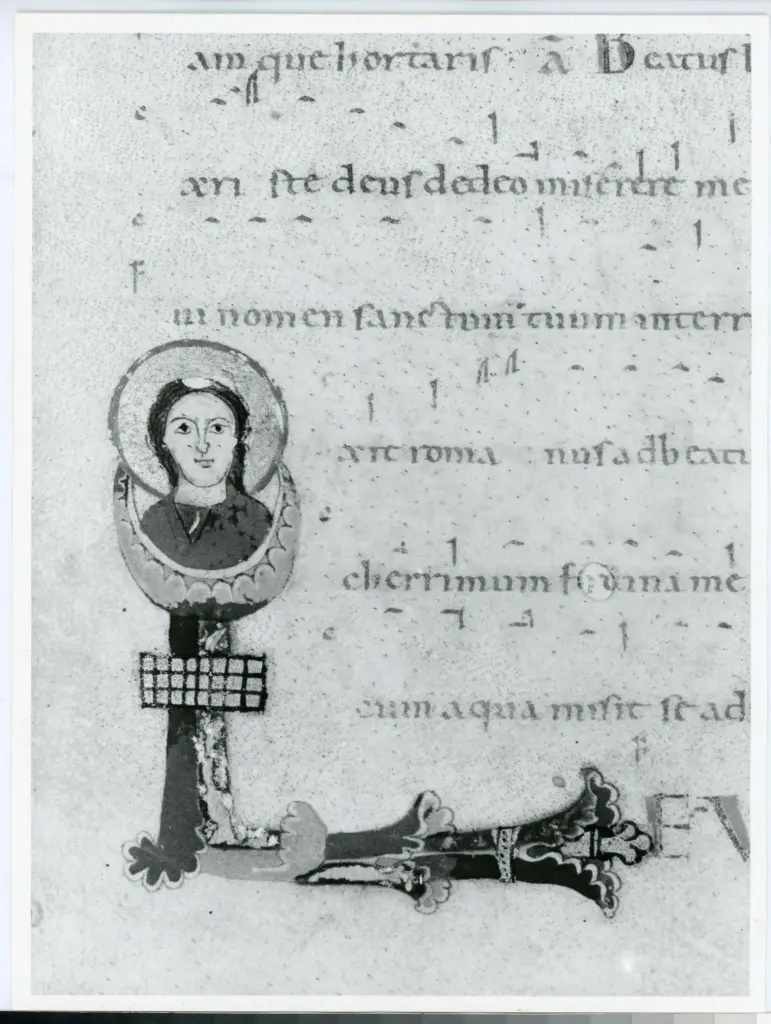 am que hortaris a Beatus l
xri ste deus dedeo miserere me
ui nomen sanctum tuum interr
xit roma nus ad beati
cherrimum f dina me
cum aqua misit se ad
L EV